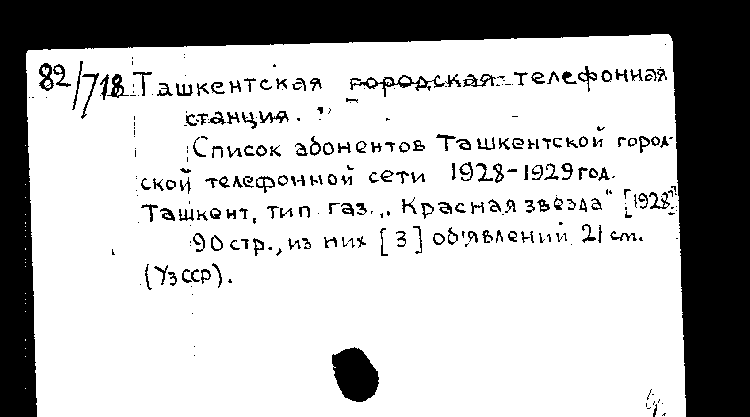 82/718 Ташкентская городская телефонная
станция.
Список абонентов Ташкентской город-
ской телефонной сети 1928-1929 год.
Ташкент, тип. газ. „Красная звезда" [1928]
90 стр., из них [3] об'явлений 21 см.
(УзССР).